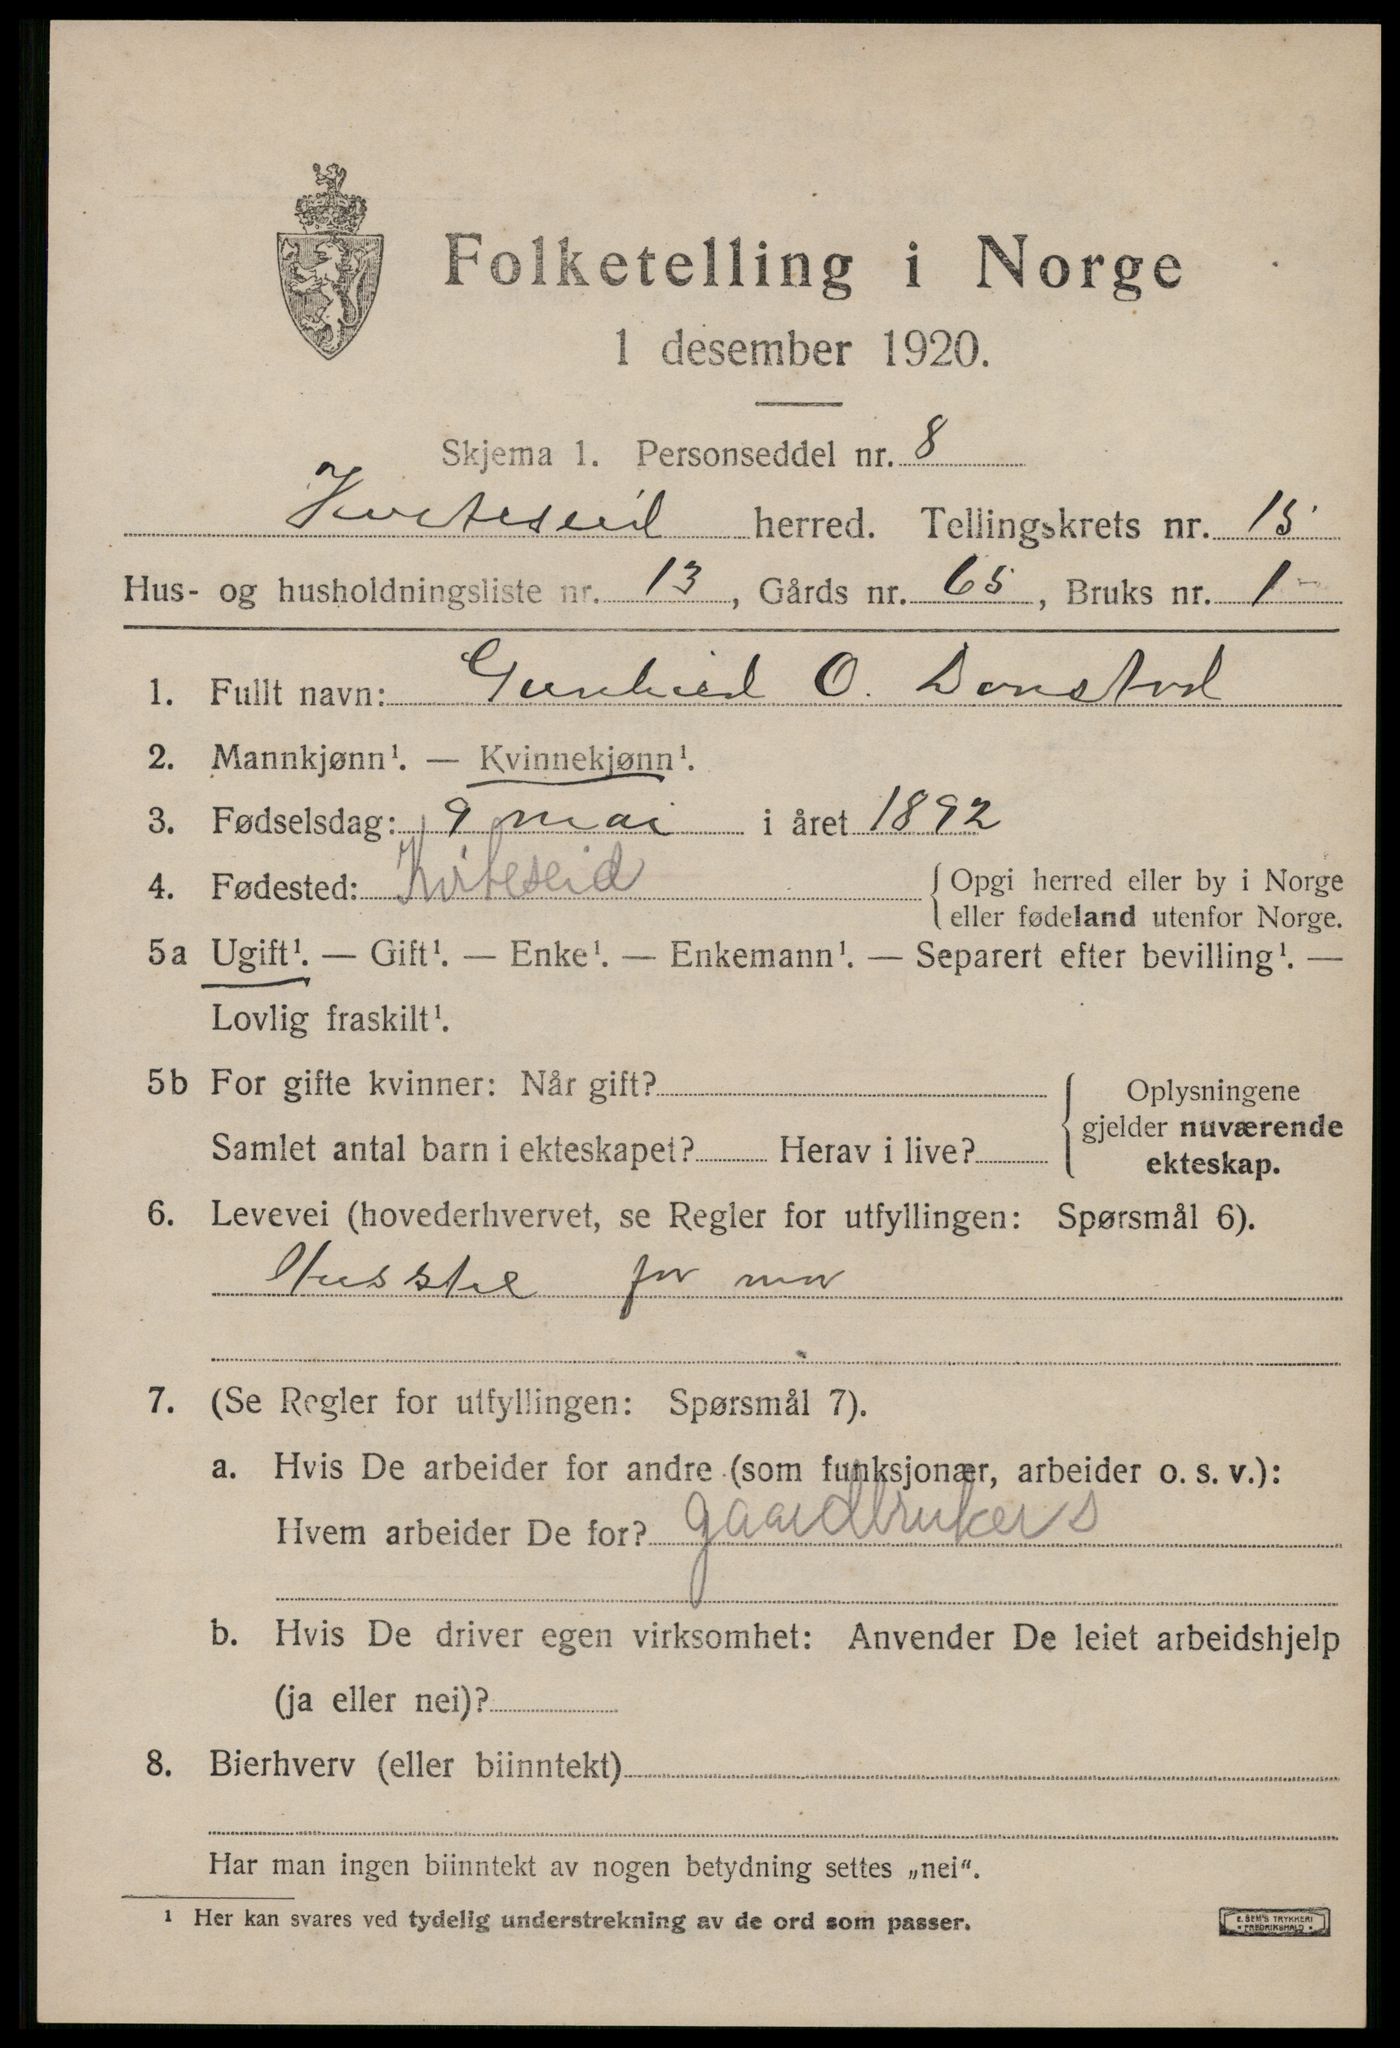 Folketelling i Norge
1 desember 1920.
Skjema 1. Personseddel nr. 8
Kviteseid herred. Tellingskrets nr. 15
Hus- og husholdningsliste nr. 13, Gårds nr. 65, Bruks nr. 1
1. Fullt navn: Gunhild O. Donstad
2. Mannkjønn¹. — Kvinnekjønn¹.
3. Fødselsdag: 9 mai i året 1892
4. Fødested: Kviteseid { Opgi herred eller by i Norge
eller fødeland utenfor Norge.
5a Ugift¹. — Gift¹. — Enke¹. — Enkemann¹. — Separert efter bevilling¹. —
Lovlig fraskilt¹.
5b For gifte kvinner: Når gift?
Samlet antal barn i ekteskapet? Herav i live?
Oplysningene
gjelder nuværende
ekteskap.
6. Levevei (hovederhvervet, se Regler for utfyllingen: Spørsmål 6).
Husstel for mor
7. (Se Regler for utfyllingen: Spørsmål 7).
a. Hvis De arbeider for andre (som funksjonær, arbeider o. s. v.):
Hvem arbeider De for? gaardbrukers
b. Hvis De driver egen virksomhet: Anvender De leiet arbeidshjelp
(ja eller nei)?
8. Bierhverv (eller biinntekt)
Har man ingen biinntekt av nogen betydning settes „nei“.
¹ Her kan svares ved tydelig understrekning av de ord som passer.
E. SEM'S TRYKKERI
FREDRIKSHALD